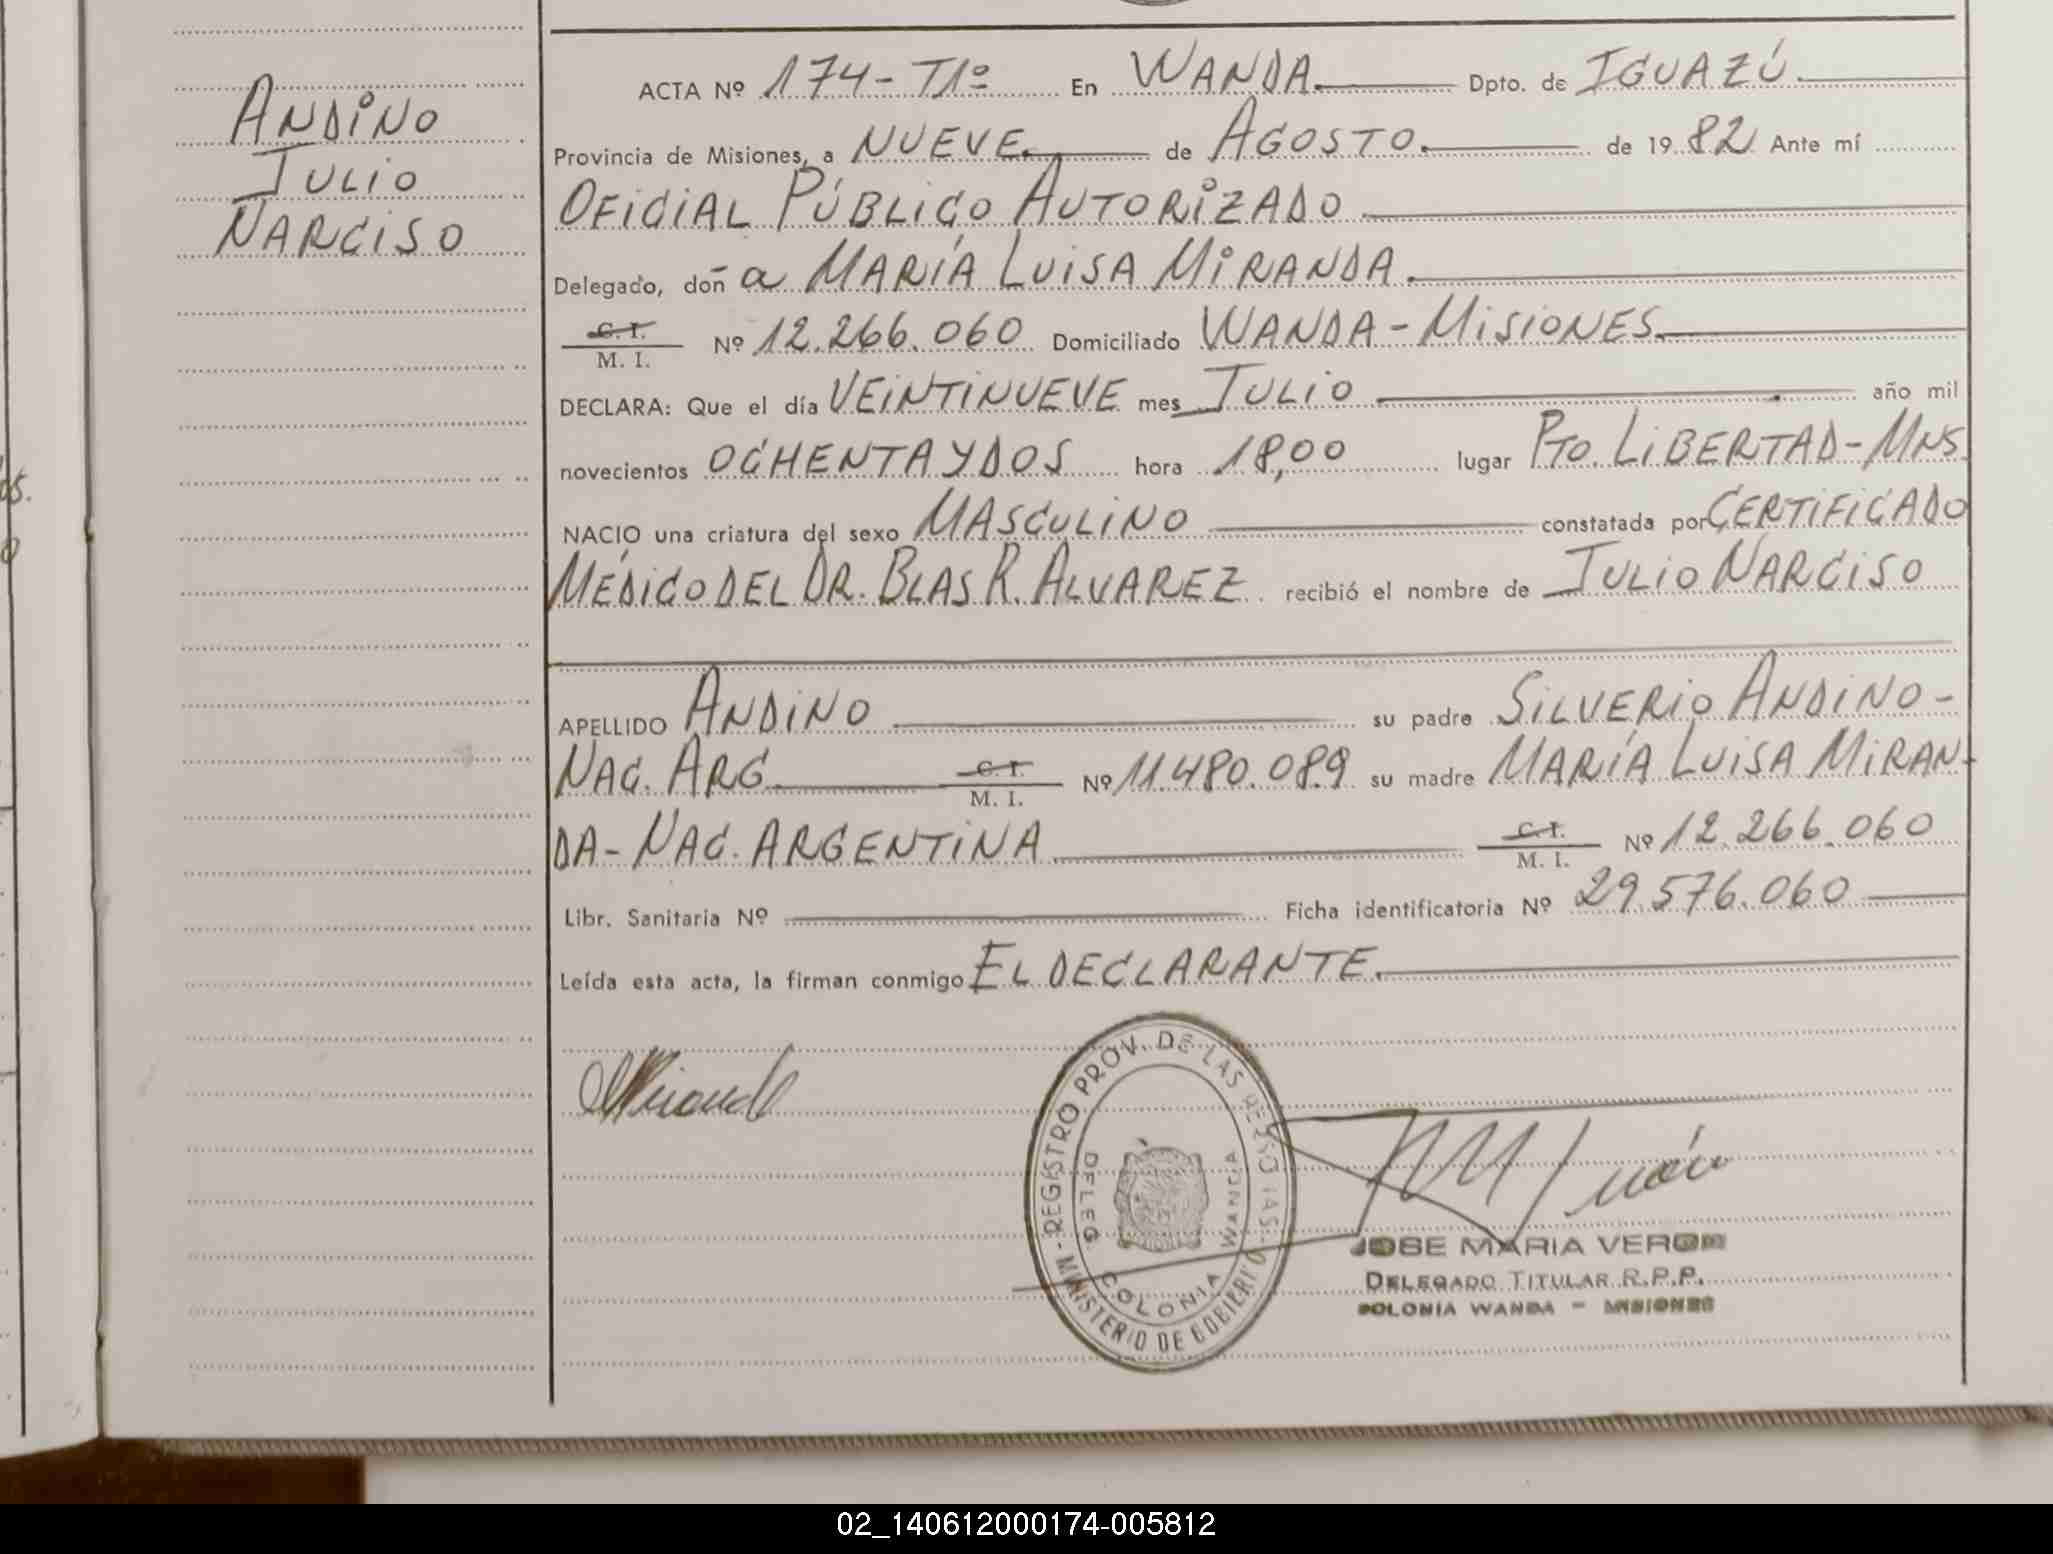 ANDINO
JULIO
NARCISO
ACTA Nº 174-T1º En WANDA. Dpto. de IGUAZÚ.
Provincia de Misiones, a NUEVE. de AGOSTO. de 1982 Ante mí
OFICIAL PÚBLICO AUTORIZADO
Delegado, doña MARÍA LUISA MIRANDA.
C. I.
M. I. Nº 12.266.060 Domiciliado WANDA-MISIONES.
DECLARA: Que el día VEINTINUEVE mes JULIO año mil
novecientos OCHENTA Y DOS hora 18,00 lugar PTO. LIBERTAD-MNS.
NACIO una criatura del sexo MASCULINO constatada por CERTIFICADO
MÉDICO DEL DR. BLAS R. ALVAREZ recibió el nombre de JULIO NARCISO
APELLIDO ANDINO su padre SILVERIO ANDINO-
NAC. ARG. C. I. M. I. Nº 11.480.089 su madre MARÍA LUISA MIRAN-
DA-NAC. ARGENTINA C. I. M. I. Nº 12.266.060
Libr. Sanitaria Nº Ficha identificatoria Nº 29.576.060
Leída esta acta, la firman conmigo EL DECLARANTE.
REGISTRO PROV. DE LAS PERSONAS
MINISTERIO DE GOBIERNO
DELEG. COLONIA WANDA
JOSE MARIA VERON
DELEGADO TITULAR R.P.P.
COLONIA WANDA - MISIONES
02_140612000174-005812